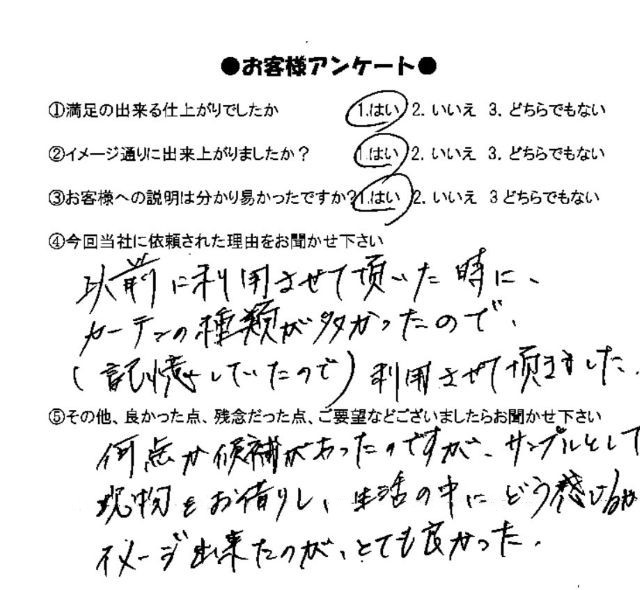 ●お客様アンケート●
①満足の出来る仕上がりでしたか 1.はい 2. いいえ 3. どちらでもない
②イメージ通りに出来上がりましたか？ 1.はい 2. いいえ 3. どちらでもない
③お客様への説明は分かり易かったですか? 1.はい 2. いいえ 3 どちらでもない
④今回当社に依頼された理由をお聞かせ下さい
以前に利用させて頂いた時に、
カーテンの種類が多かったので、
(記憶していたので)利用させて頂きました.
⑤その他、良かった点、残念だった点、ご要望などございましたらお聞かせ下さい
何点か候補があったのですが、サンプルとして
現物をお借りし、生活の中にどう感じるか
イメージ出来たのが、とても良かった.